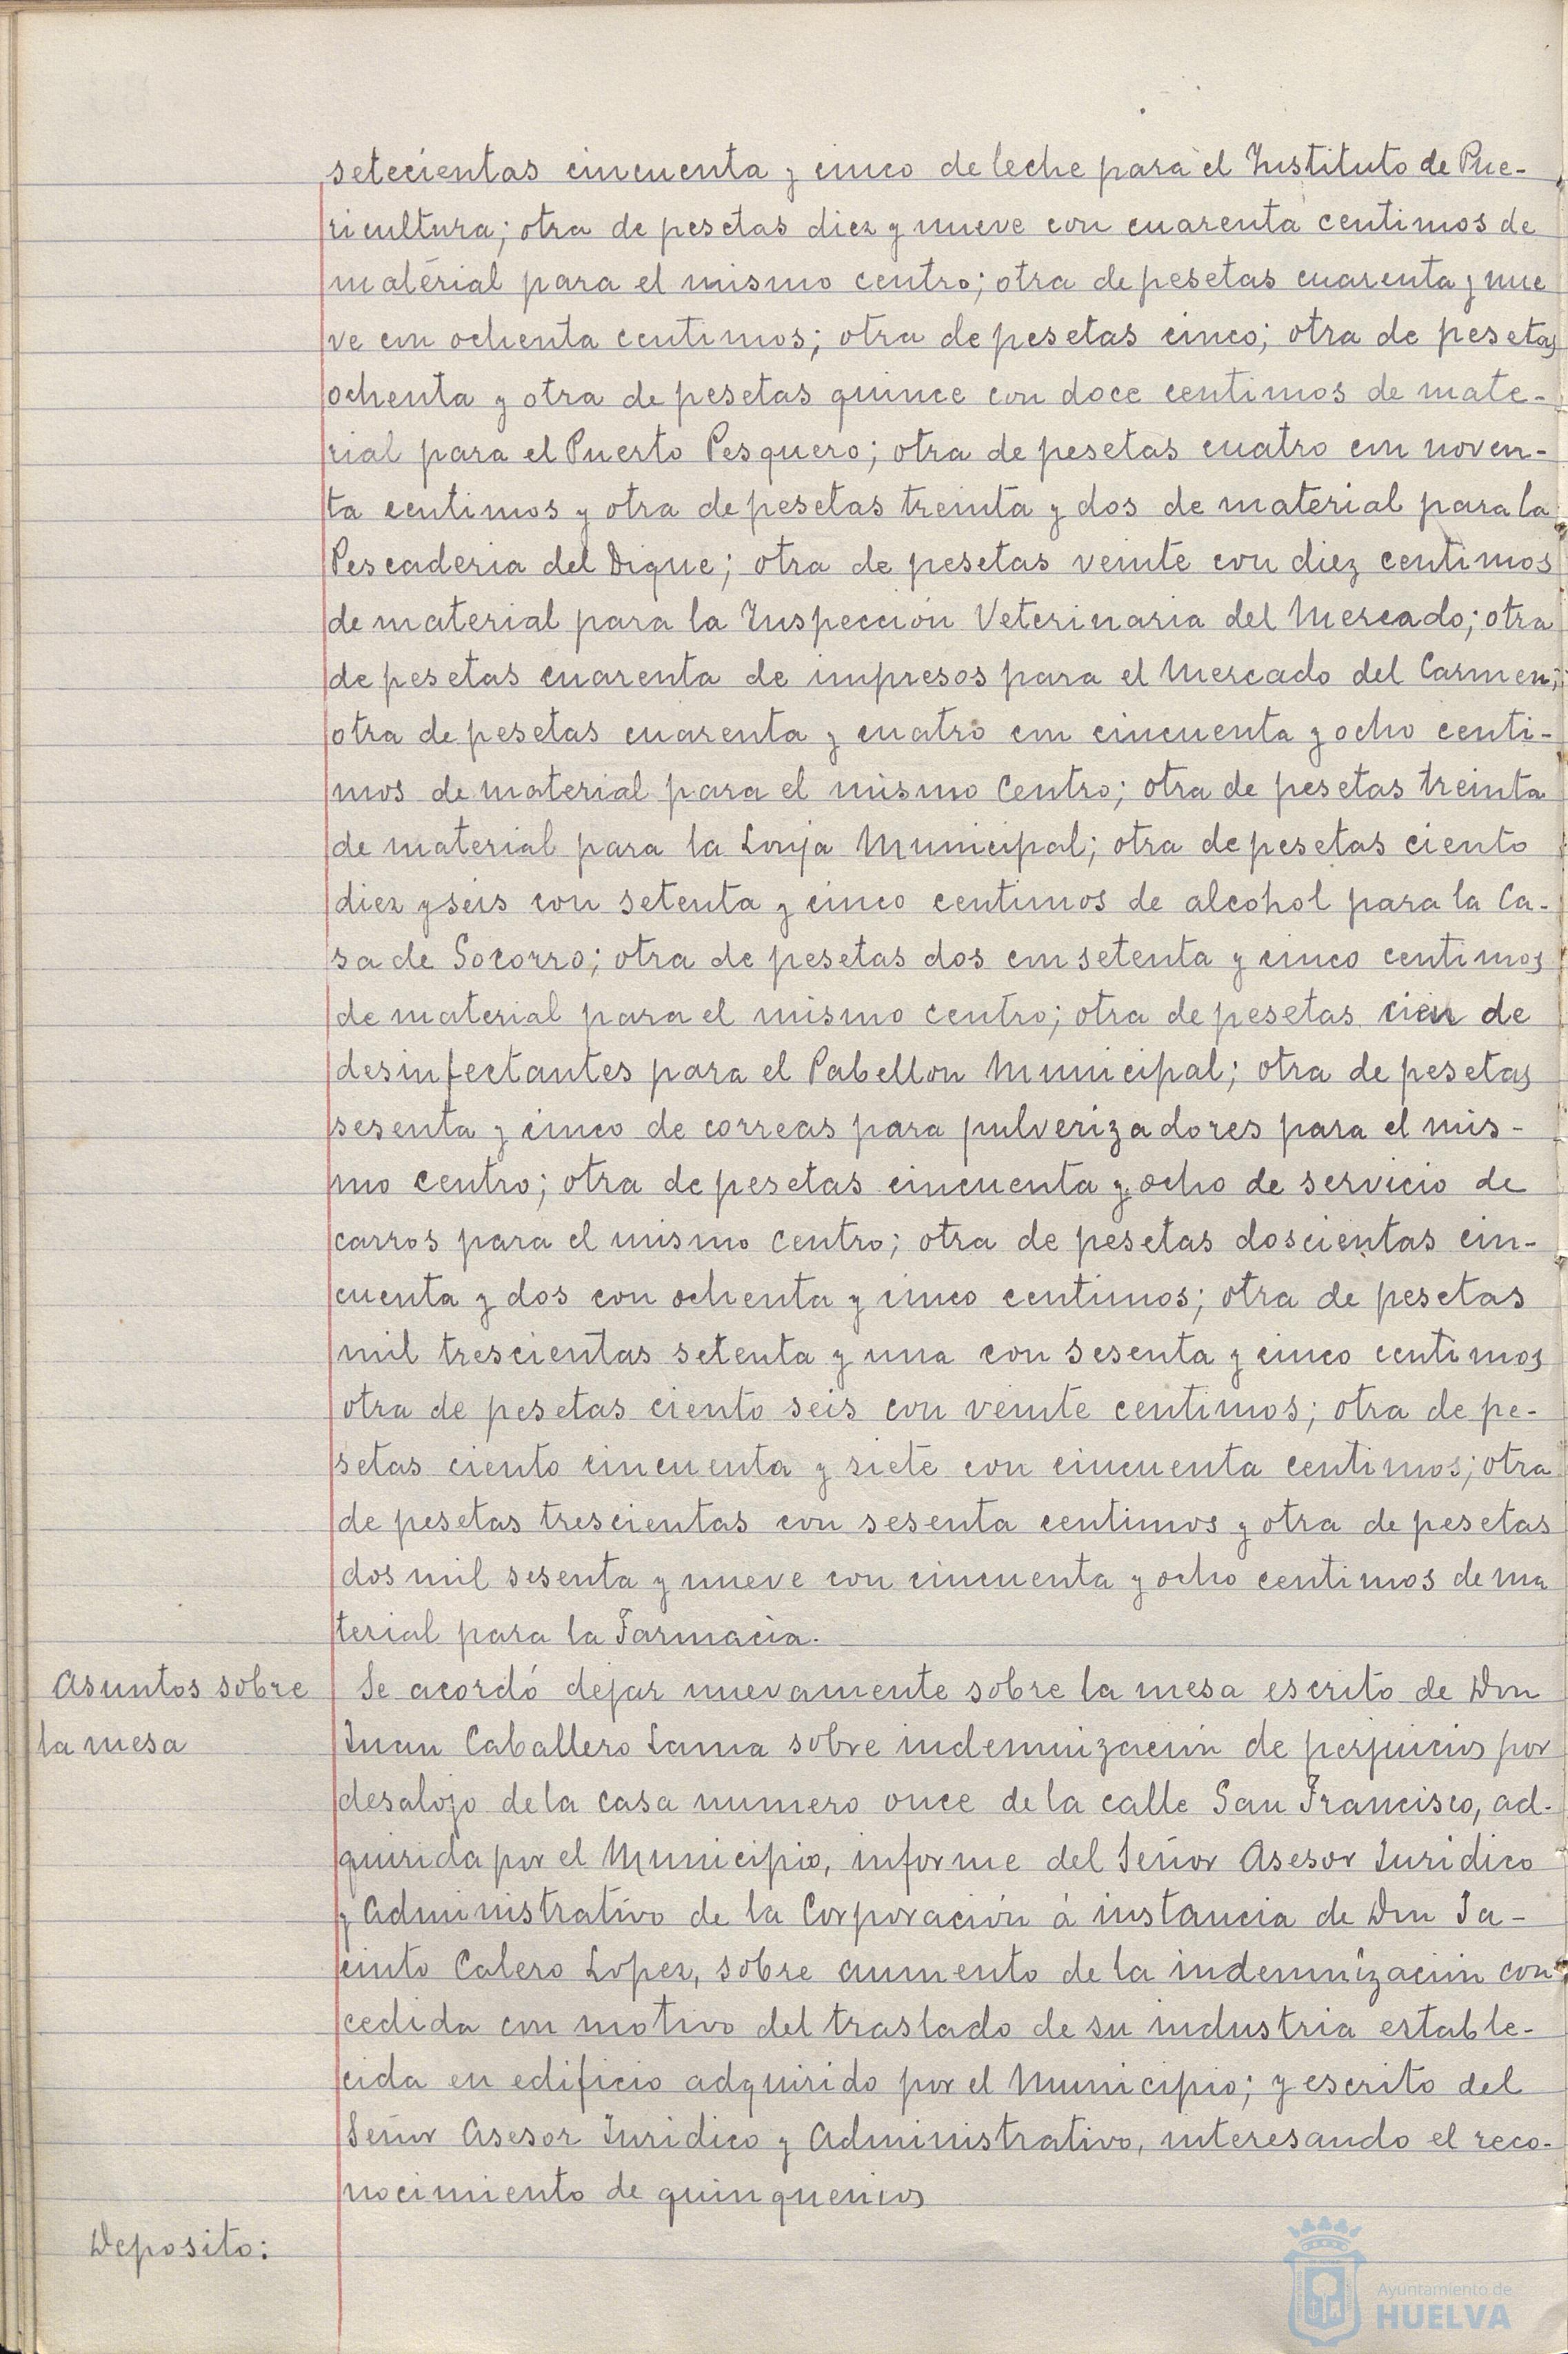 setecientas cincuenta y cinco de leche para el Instituto de Pue-
ricultura; otra de pesetas diez y nueve con cuarenta centimos de
material para el mismo centro; otra de pesetas cuarenta y nue
ve con ochenta centimos; otra de pesetas cinco; otra de pesetas
ochenta y otra de pesetas quince con doce centimos de mate-
rial para el Puerto Pesquero; otra de pesetas cuatro con noven-
ta centimos y otra de pesetas treinta y dos de material para la
Pescaderia del Dique; otra de pesetas veinte con diez centimos
de material para la Inspección Veterinaria del Mercado; otra
de pesetas cuarenta de impresos para el Mercado del Carmen;
otra de pesetas cuarenta y cuatro con cincuenta y ocho centi-
mos de material para el mismo Centro; otra de pesetas treinta
de material para la Lonja Municipal; otra de pesetas ciento
diez y seis con setenta y cinco centimos de alcohol para la Ca-
sa de Socorro; otra de pesetas dos con setenta y cinco centimos
de material para el mismo centro; otra de pesetas cien de
desinfectantes para el Pabellon Municipal; otra de pesetas
sesenta y cinco de correas para pulverizadores para el mis-
mo centro; otra de pesetas cincuenta y ocho de servicio de
carros para el mismo centro; otra de pesetas doscientas cin-
cuenta y dos con ochenta y cinco centimos; otra de pesetas
mil trescientas setenta y una con sesenta y cinco centimos
otra de pesetas ciento seis con veinte centimos; otra de pe-
setas ciento cincuenta y siete con cincuenta centimos; otra
de pesetas trescientas con sesenta centimos y otra de pesetas
dos mil sesenta y nueve con cincuenta y ocho centimos de ma
terial para la Farmacia.
Asuntos sobre Se acordó dejar nuevamente sobre la mesa escrito de Don
la mesa Juan Caballero Lama sobre indemnización de perjuicios por
desalojo de la casa numero once de la calle San Francisco, ad-
quirida por el Municipio, informe del Señor Asesor Juridico
y Administrativo de la Corporación á instancia de Don Ja-
cinto Calero Lopez, sobre aumento de la indemnización con-
cedida con motivo del traslado de su industria estable-
cida en edificio adquirido por el Municipio; y escrito del
Señor Asesor Juridico y Administrativo, interesando el reco-
nocimiento de quinquenios
Deposito:
Ayuntamiento de
HUELVA